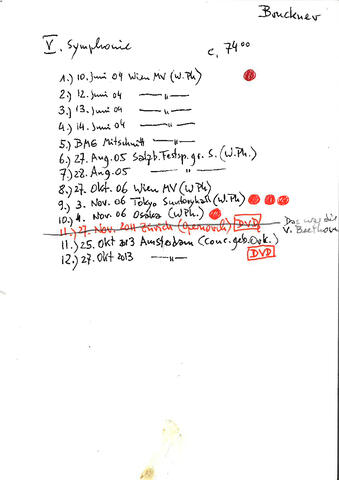 Bruckner
V. Symphonie c. 74⁰⁰
1.) 10. Juni 04 Wien MV (W.Ph)
2.) 12. Juni 04 —— " ——
3.) 13. Juni 04 —— " ——
4.) 14. Juni 04 —— " ——
5.) BMG Mitschnitt —— " ——
6.) 27. Aug. 05 Salzb. Festsp. gr. S. (W.Ph.)
7.) 28. Aug. 05 —— " ——
8.) 27. Okt. 06 Wien MV (W.Ph)
9.) 3. Nov. 06 Tokyo Suntoryhall (W.Ph)
10.) 4. Nov. 06 Osaka (W.Ph.)
11.) 27. Nov. 2011 Zürich DVD Das war die V. Beethoven
11.) 25. Okt 2013 Amsterdam (Conc.geb. Ork.)
12.) 27. Okt 2013 —— " —— DVD